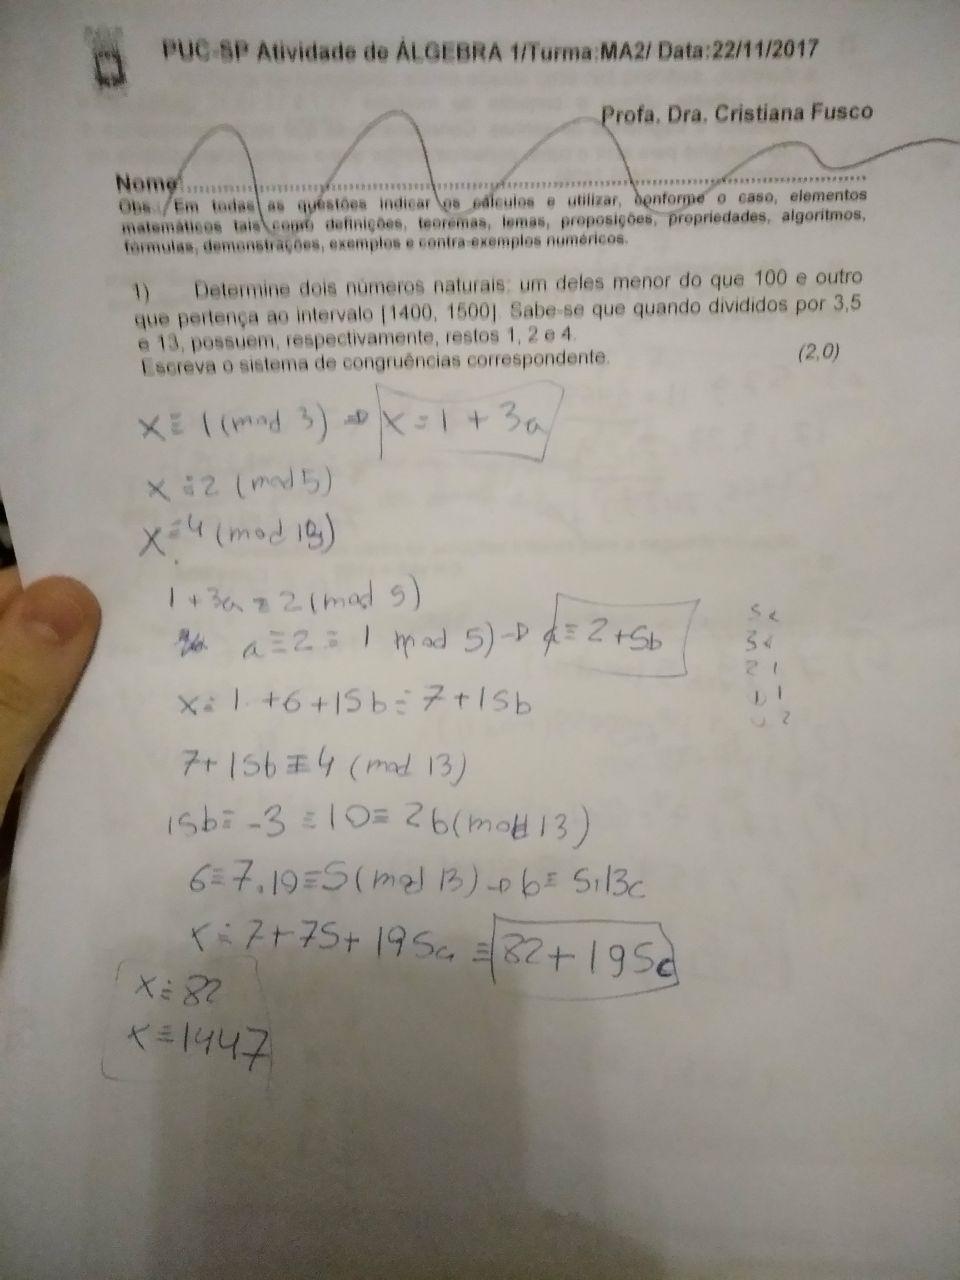 PUC-SP Atividade de ÁLGEBRA 1/Turma:MA2/ Data:22/11/2017
Profa. Dra. Cristiana Fusco
Nome:
Obs.: Em todas as questões indicar os cálculos e utilizar, conforme o caso, elementos
matemáticos tais como definições, teoremas, lemas, proposições, propriedades, algoritmos,
fórmulas, demonstrações, exemplos e contra-exemplos numéricos.
1) Determine dois números naturais: um deles menor do que 100 e outro
que pertença ao intervalo [1400, 1500]. Sabe-se que quando divididos por 3,5
e 13, possuem, respectivamente, restos 1, 2 e 4.
Escreva o sistema de congruências correspondente. (2,0)
x ≡ 1 (mod 3) ⇒ x = 1 + 3a
x ≡ 2 (mod 5)
x ≡ 4 (mod 13)
1 + 3a ≡ 2 (mod 5)
a ≡ 2 ≡ 1 mod 5) → a ≡ 2 + 5b
x = 1 + 6 + 15b = 7 + 15b
7 + 15b ≡ 4 (mod 13)
15b ≡ -3 ≡ 10 ≡ 2b (mod 13)
6 ≡ 7.10 ≡ 5 (mod 13) → b ≡ 5,13c
x = 7 + 75 + 195c ≡ 82 + 195c
x ≡ 82
x ≡ 1447